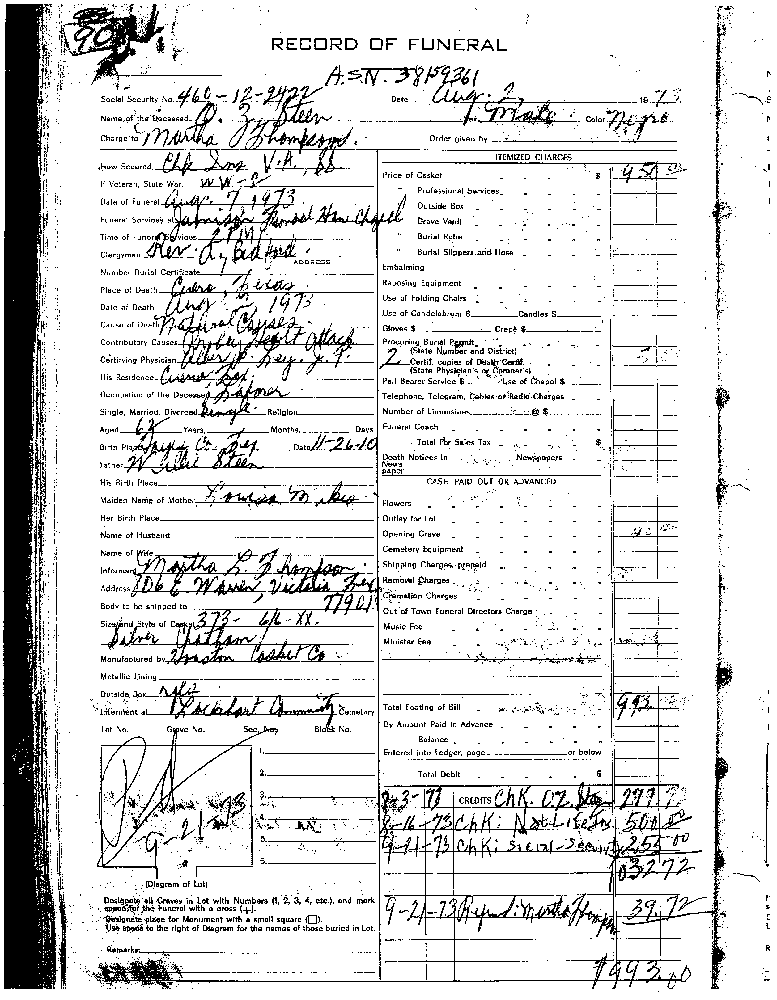 90
RECORD OF FUNERAL
A.S.N. 38159361
Social Security No. 460-12-2422 Date Aug. 2, 1973
Name of the Deceased O. Z. Steen Male Color Negro
Charge to Martha L. Thompson Order given by
How Secured Chk Ins V.A.
If Veteran, State War WW-2
Date of Funeral Aug. 7, 1973
Funeral Services at Funeral Home Chapel
Time of Funeral Services 2 PM
Clergyman Rev. Bedford
ADDRESS
Number Burial Certificate
Place of Death Cuero, Texas
Date of Death Aug 2, 1973
Cause of Death Natural Causes
Contributory Causes Heart Attack
Certifying Physician J.P.
His Residence Cuero,
Occupation of the Deceased Laborer
Single, Married, Divorced Single Religion
Aged 62 Years, Months, Days
Birth Place Co. Tex Date 11-26-10
Father Willie Steen
His Birth Place
Maiden Name of Mother
Her Birth Place
Name of Husband
Name of Wife
Informant Martha L. Thompson
Address 706 E. Warren, Victoria Tex
77901
Body to be shipped to
Size and Style of Casket 373- 6/6-XX.
Silver Chatham
Manufactured by Houston Casket Co
Metallic Lining
Outside Box
Interment at Lockhart Community Cemetery
Lot No. Grave No. Sec. No. Block No.
1.
2.
3.
4.
5.
6.
9-21-73
(Diagram of Lot)
Designate all Graves in Lot with Numbers (1, 2, 3, 4, etc.), and mark
space for the Funeral with a cross (+).
Designate place for Monument with a small square (□).
Use space to the right of Diagram for the names of those buried in Lot.
Remarks:
ITEMIZED CHARGES
Price of Casket $ 950 00
" Professional Services
" Outside Box
" Grave Vault
" Burial Robe
" Burial Slippers and Hose
Embalming
Reposing Equipment
Use of Folding Chairs
Use of Candelabrum $ Candles $
Gloves $ Crepe $
Procuring Burial Permit
(State Number and District)
2 Certif. copies of Death Certif.
(State Physician's or Coroner's)
Pall Bearer Service $ Use of Chapel $
Telephone, Telegram, Cables or Radio Charges
Number of Limousines @ $
Funeral Coach
Total for Sales Tax $
Death Notices in Newspapers
News
paper
CASH PAID OUT OR ADVANCED
Flowers
Outlay for Lot
Opening Grave 40
Cemetery Equipment
Shipping Charges prepaid
Removal Charges
Cremation Charges
Out of Town Funeral Directors Charge
Music Fee
Minister Fee
Total Footing of Bill 993
By Amount Paid in Advance
Balance
Entered into Ledger, page or below
Total Debit $
8-3-73 CREDITS Chk. O.Z. Steen 277 72
8-16-73 Chk: 500.00
9-21-73 Chk: Social-Security 255 00
1032 72
9-21-73 Refund: Martha Thompson 39.72
$993.00